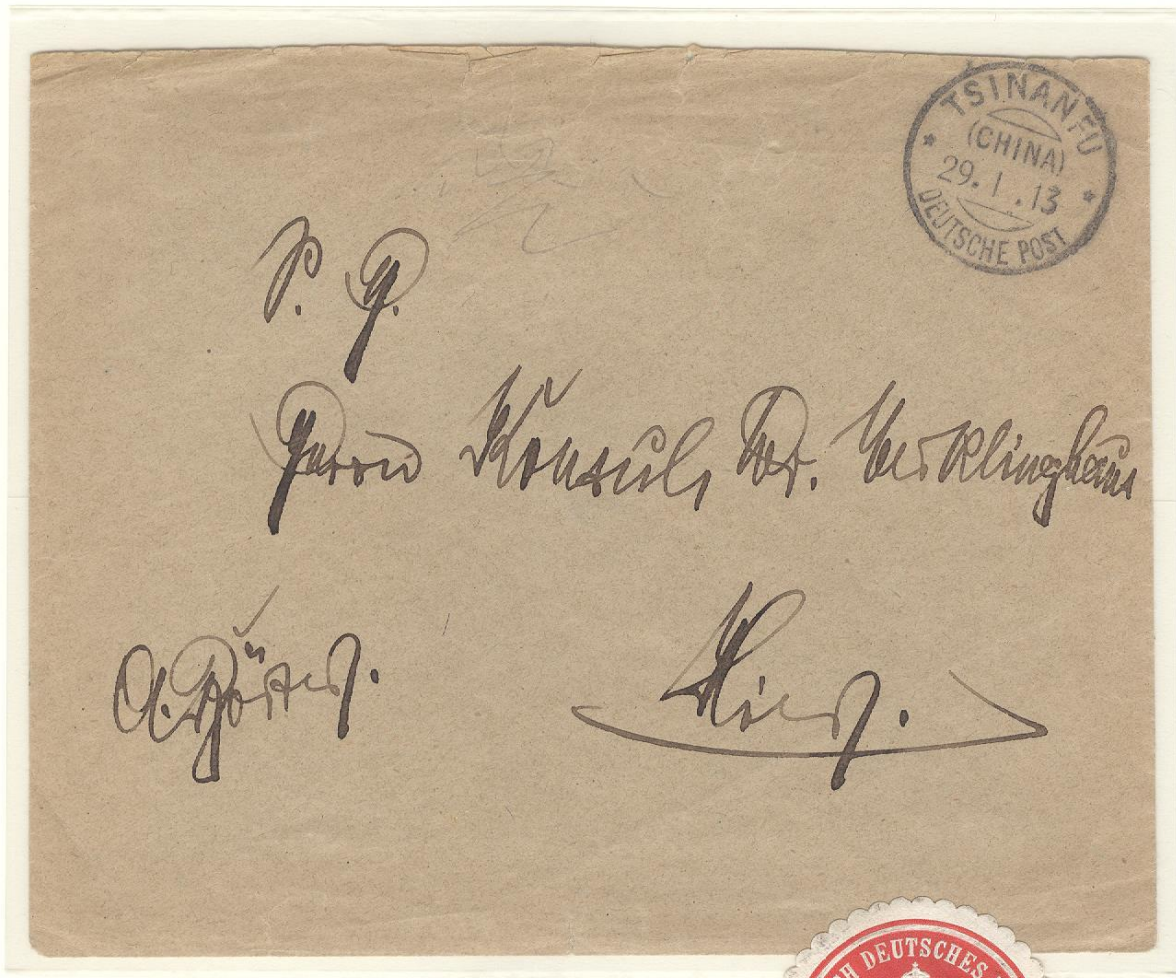 TSINANFU
(CHINA)
29.1.13
DEUTSCHE POST
S. H.
Herrn Konsul Dr. Merklinghaus
Hier.
DEUTSCHES